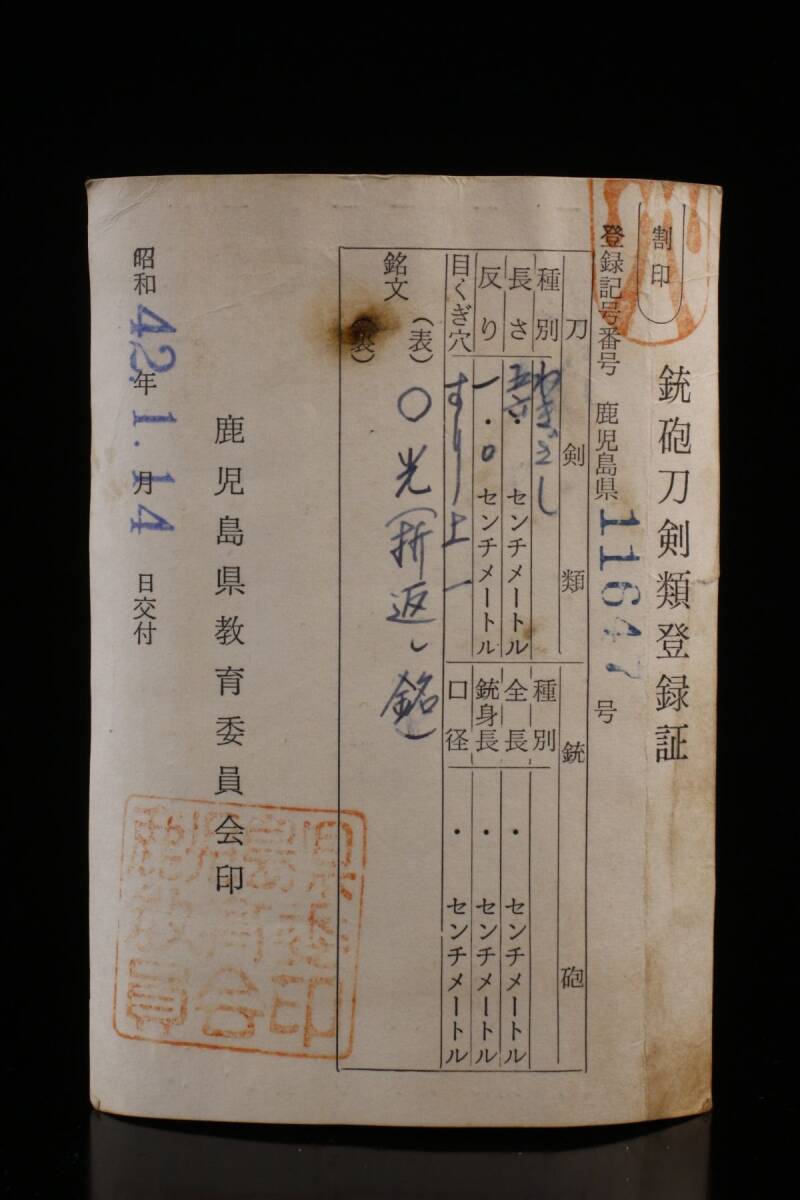 割印
銃砲刀剣類登録証
登録記号番号 鹿児島県 11647 号
刀剣類
種別 わきざし
長さ 五六・ センチメートル
反り 一・〇 センチメートル
目くぎ穴 すり上一
銃砲
種別
全長 ・ センチメートル
銃身長 ・ センチメートル
口径 ・ センチメートル
銘文 (表) 〇光(折返し銘)
(裏)
鹿児島県教育委員会印
昭和 42 年 1. 月 14 日交付
鹿児島県教育委員会印